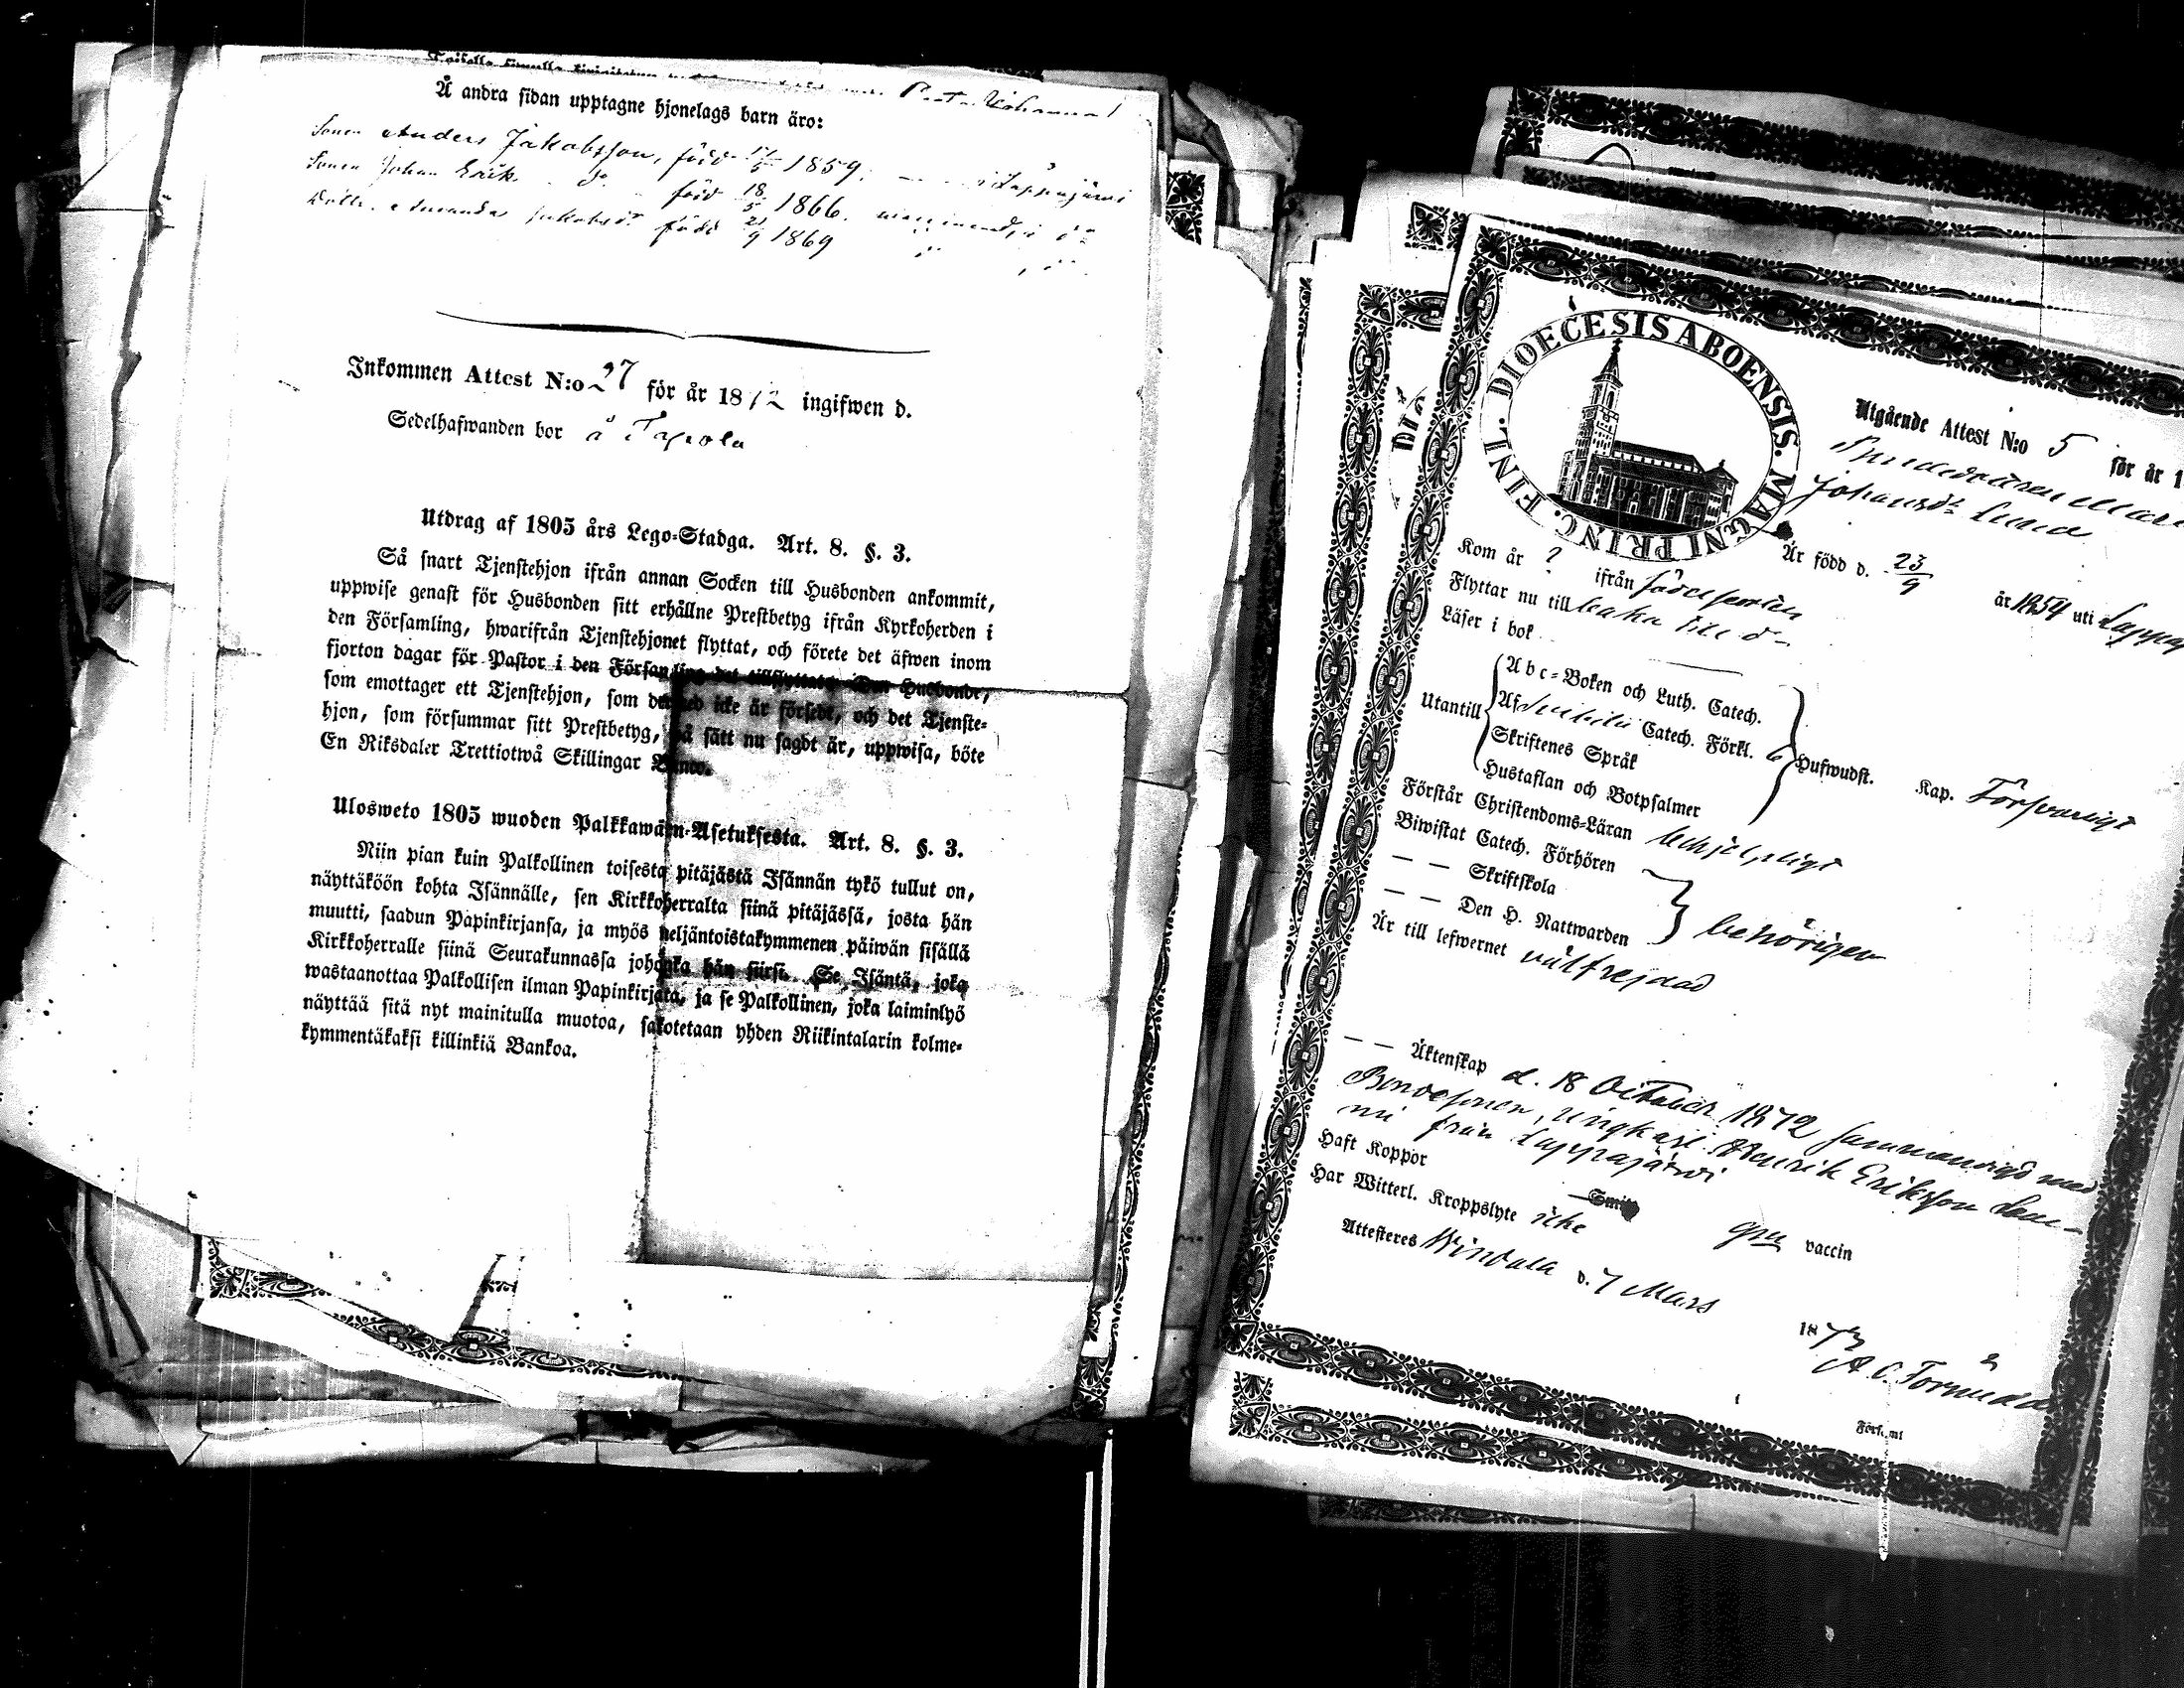 Å andra sidan upptagne hjonelags barn äro:
Sonen Anders Jakobsson, född 1859.
Sonen Johan Erik do född 18/5 1866.
Amanda Jakobsdr född 21/9 1869
Inkommen Attest N:o 27 för år 1872 ingifwen d.
Sedelhafwanden bor å
Utdrag af 1805 års Lego-Stadga. Art. 8. §. 3.
Så snart Tjenstehjon ifrån annan Socken till Husbonden ankommit,
uppwise genast för Husbonden sitt erhållne Prestbetyg ifrån Kyrkoherden i
den Församling, hwarifrån Tjenstehjonet flyttat, och förete det äfwen inom
fjorton dagar för Pastor i den Församling det tillflyttat. Den Husbonde,
som emottager ett Tjenstehjon, som dermed icke är försedt, och det Tjenste-
hjon, som försummar sitt Prestbetyg, på sätt nu sagdt är, uppwisa, böte
En Riksdaler Trettiotwå Skillingar Banco.
Ulosweto 1805 wuoden Palkkawäen-Asetuksesta. Art. 8. §. 3.
Niin pian kuin Palkollinen toisesta pitäjästä Isännän tykö tullut on,
näyttäköön kohta Isännälle, sen Kirkkoherralta siinä pitäjässä, josta hän
muutti, saadun Papinkirjansa, ja myös neljäntoistakymmenen päiwän sisällä
Kirkkoherralle siinä Seurakunnassa johonka hän siirsi. Se Isäntä, joka
wastaanottaa Palkollisen ilman Papinkirjata, ja se Palkollinen, joka laiminlyö
näyttää sitä nyt mainitulla muotoa, sakotetaan yhden Riikintalarin kolme-
kymmentäkaksi killinkiä Bankoa.
DIOECESIS ABOENSIS. MAGNI PRINC. FINL.
Utgående Attest N:o 5 för år 1
Johansdr
Är född d. 23/9 år 1854 uti
Kom år ? ifrån
Flyttar nu till
Läser i bok
Utantill
Abc-Boken och Luth. Catech.
Af Svebilii Catech. Förkl. 6 Hufwudst. Kap. Försvarligt
Skriftenes Språk
Hustaflan och Botpsalmer
Förstår Christendoms-Läran
Biwistat Catech. Förhören
— — Skriftskola
— — Den H. Nattwarden behörigen
Är till lefwernet välfrejdad
— — Äktenskap d. 18 October 1872 sammanvigd med
Bondesonen, ungkarl. Henrik Eriksson
från Lappajärvi
Haft Koppor — Smitt gm vaccin
Har Witterl. Kroppslyte icke
Attesteres Windala d. 7 Mars 1873
A. C.